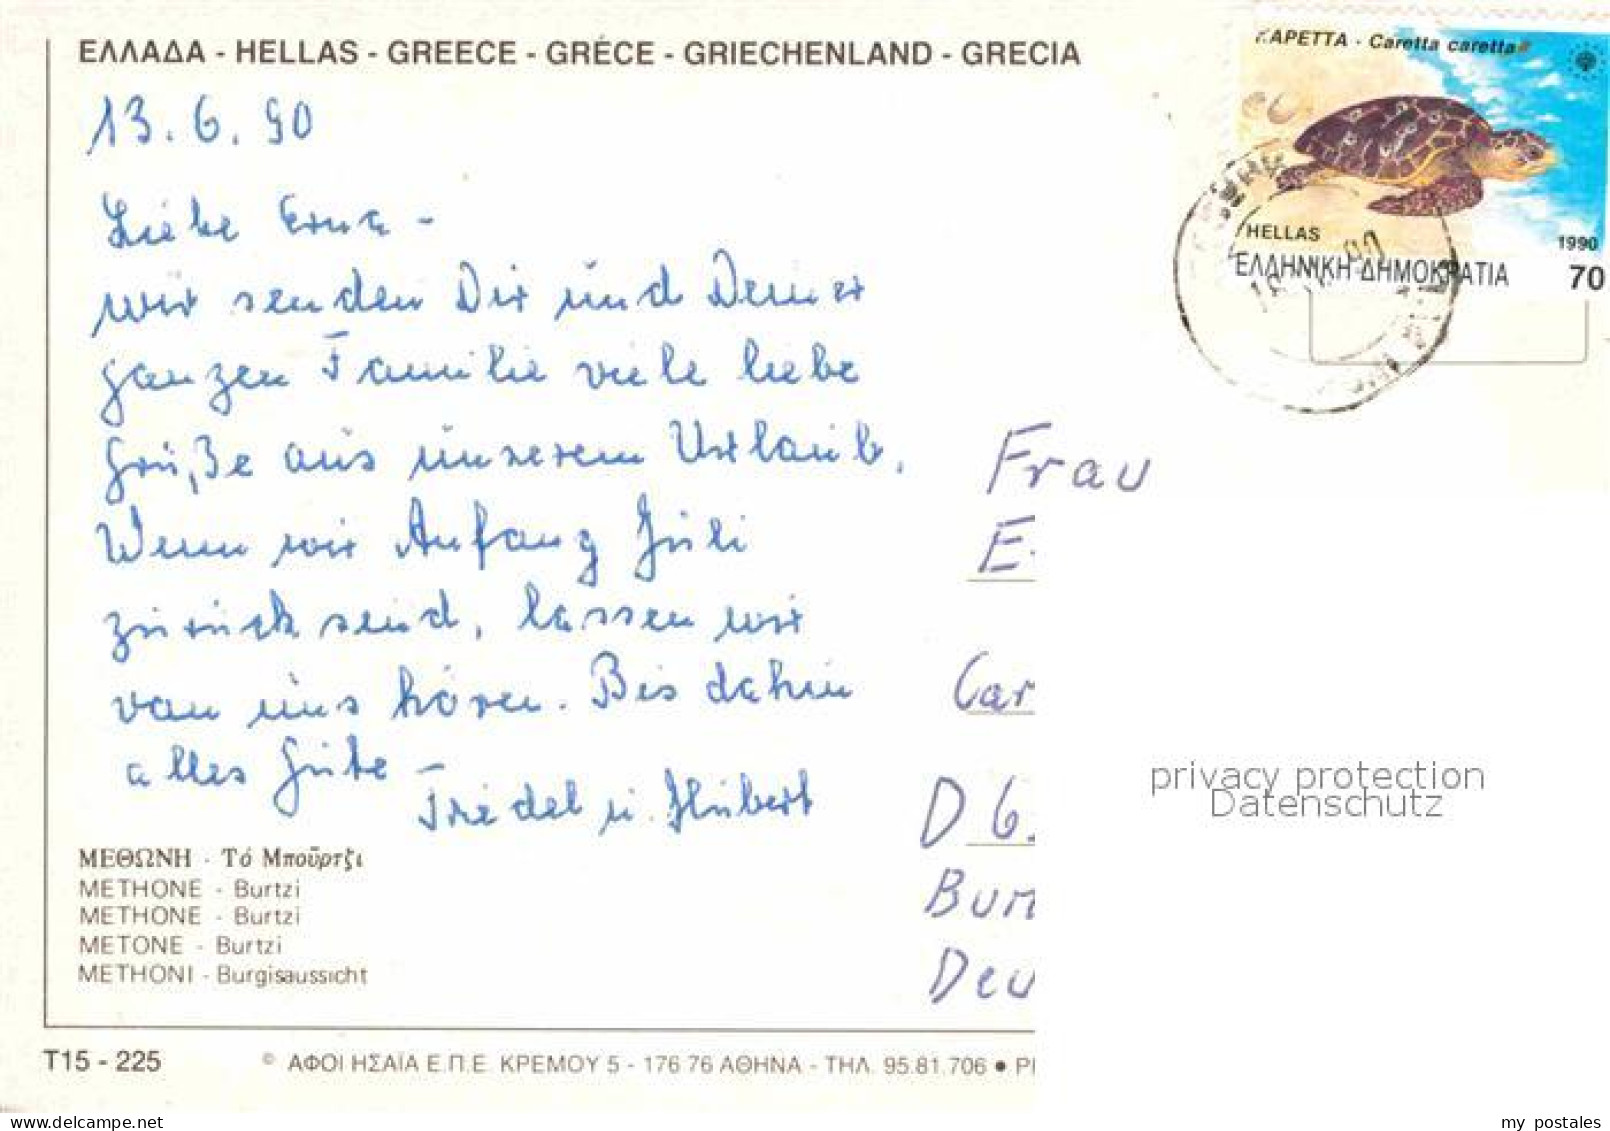 ΕΛΛΑΔΑ - HELLAS - GREECE - GRÉCE - GRIECHENLAND - GRECIA
13.6.90
Liebe Erna -
wir senden Dir und Deiner
ganzen Familie viele liebe
Grüße aus unserem Urlaub.
Wenn wir Anfang Juli
zurück sind, lassen wir
von uns hören. Bis dahin
alles Gute -
Friedel u. Hubert
ΜΕΘΩΝΗ - Τό Μπούρτζι
METHONE - Burtzi
METHONE - Burtzi
METONE - Burtzi
METHONI - Burgisaussicht
T15 - 225
© ΑΦΟΙ ΗΣΑΪΑ Ε.Π.Ε. ΚΡΕΜΟΥ 5 - 176 76 ΑΘΗΝΑ - ΤΗΛ. 95.81.706 ●
ΚΑΡΕΤΤΑ - Caretta caretta
HELLAS
1990
ΕΛΛΗΝΙΚΗ ΔΗΜΟΚΡΑΤΙΑ 70
Frau
E.
Car
D 6.
Bun
Deu
privacy protection
Datenschutz
my postales